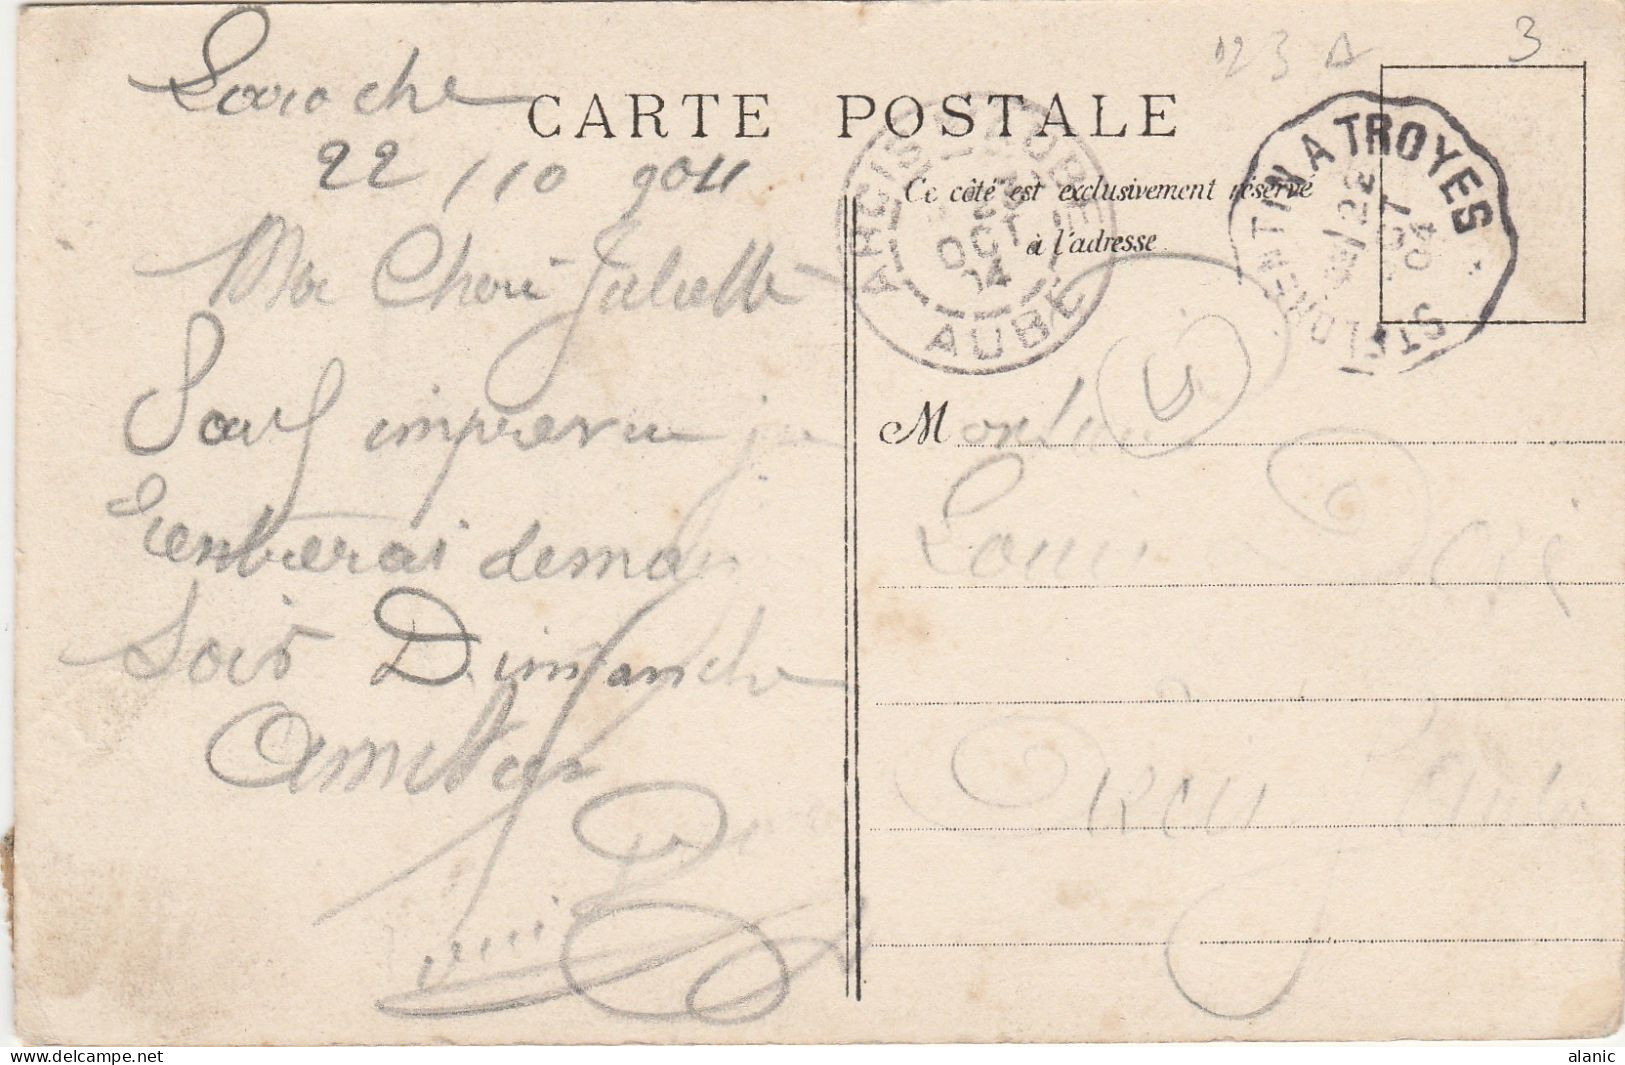 Laroche
22/10 904
Ma Cheri Juliette
Sauf imprevu je
rentrerai demain
soir Dimanche
Amities
CARTE POSTALE
Ce côté est exclusivement réservé
à l'adresse
ARCIS AUBE
OCT
04
AUBE
ST FLORENTIN A TROYES
22
OCT
04
123 A
3
Monsieur
Louis
alanic